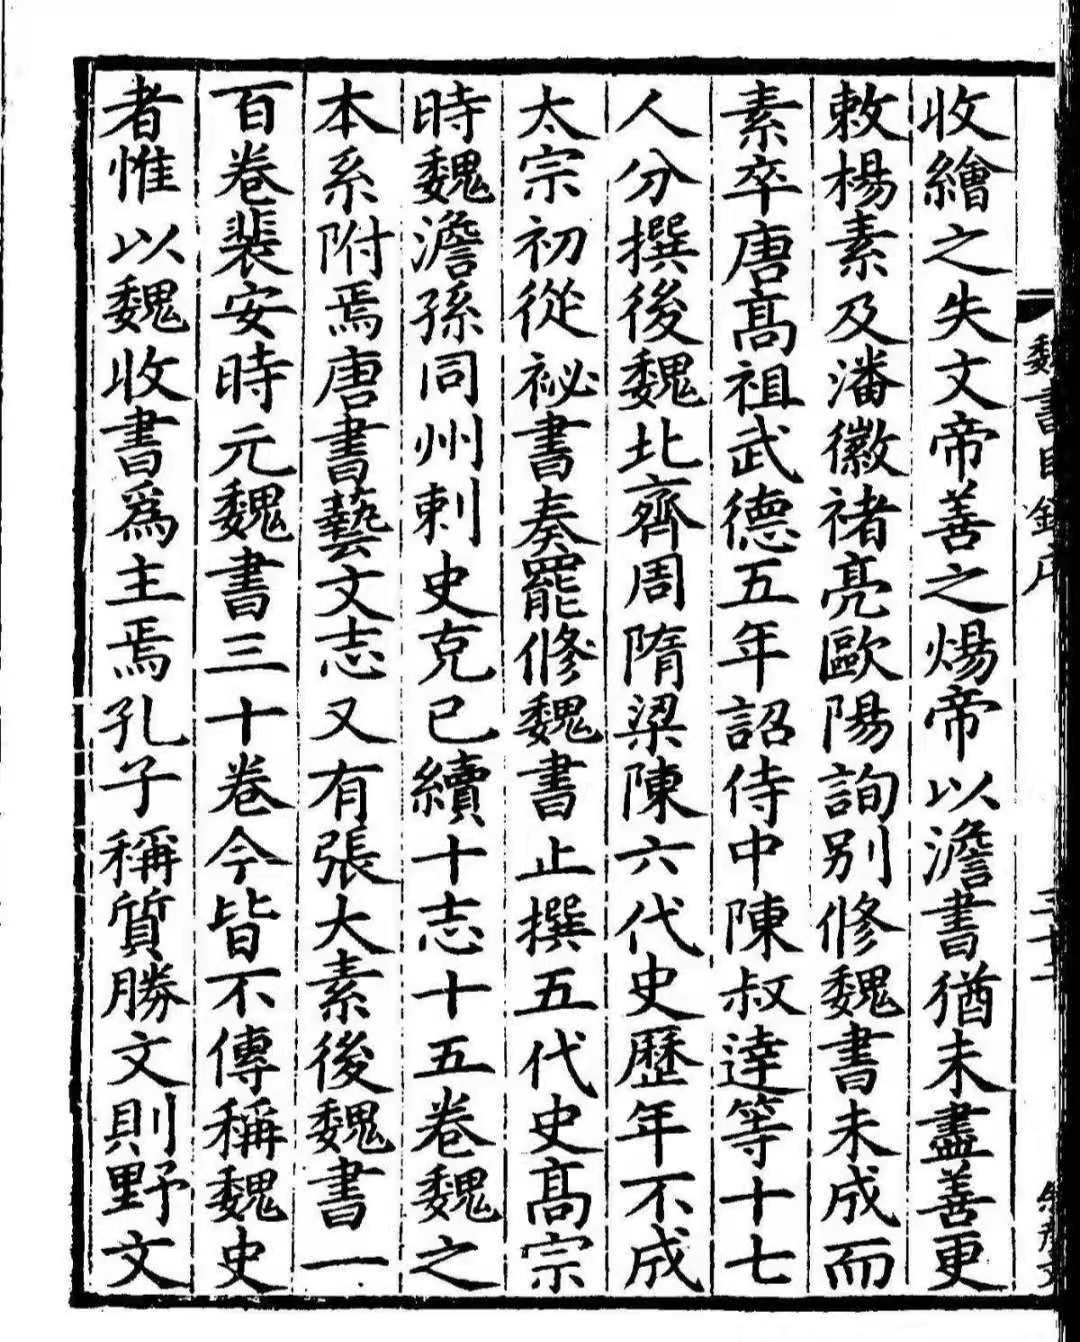 魏書目錄序
收繪之失文帝善之煬帝以澹書猶未盡善更
敕楊素及潘徽褚亮歐陽詢別修魏書未成而
素卒唐髙祖武德五年詔侍中陳叔達等十七
人分撰後魏北齊周隋梁陳六代史歷年不成
太宗初從祕書奏罷修魏書止撰五代史髙宗
時魏澹孫同州刺史克己續十志十五卷魏之
本系附焉唐書藝文志又有張大素後魏書一
百卷裴安時元魏書三十卷今皆不傳稱魏史
者惟以魏收書爲主焉孔子稱質勝文則野文